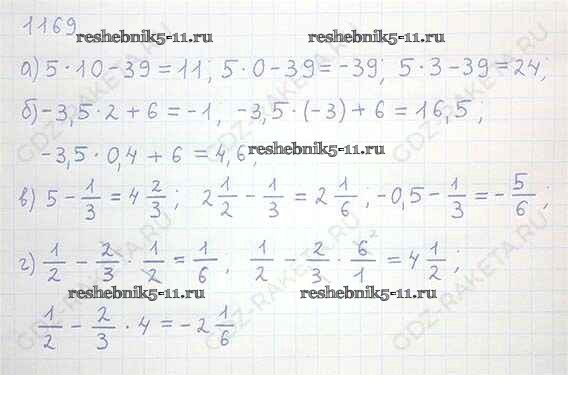 1169
reshebnik5-11.ru reshebnik5-11.ru
а) 5·10-39=11; 5·0-39=-39; 5·3-39=24;
б) -3,5·2+6=-1, -3,5·(-3)+6=16,5;
-3,5·0,4+6=4,6; reshebnik5-11.ru
в) 5-1/3=4 2/3; 2 1/2-1/3=2 1/6; -0,5-1/3=-5/6;
г) 1/2-2/3·1/2=1/6; 1/2-2/3·6/1 2=4 1/2;
reshebnik5-11.ru reshebnik5-11.ru
1/2-2/3·4=-2 1/6
GDZ-RAKETA.RU
GDZ-RAKETA.RU
GDZ-RAKETA.RU
GDZ-RAKETA.RU
GDZ-RAKETA.RU
GDZ-RAKETA.RU